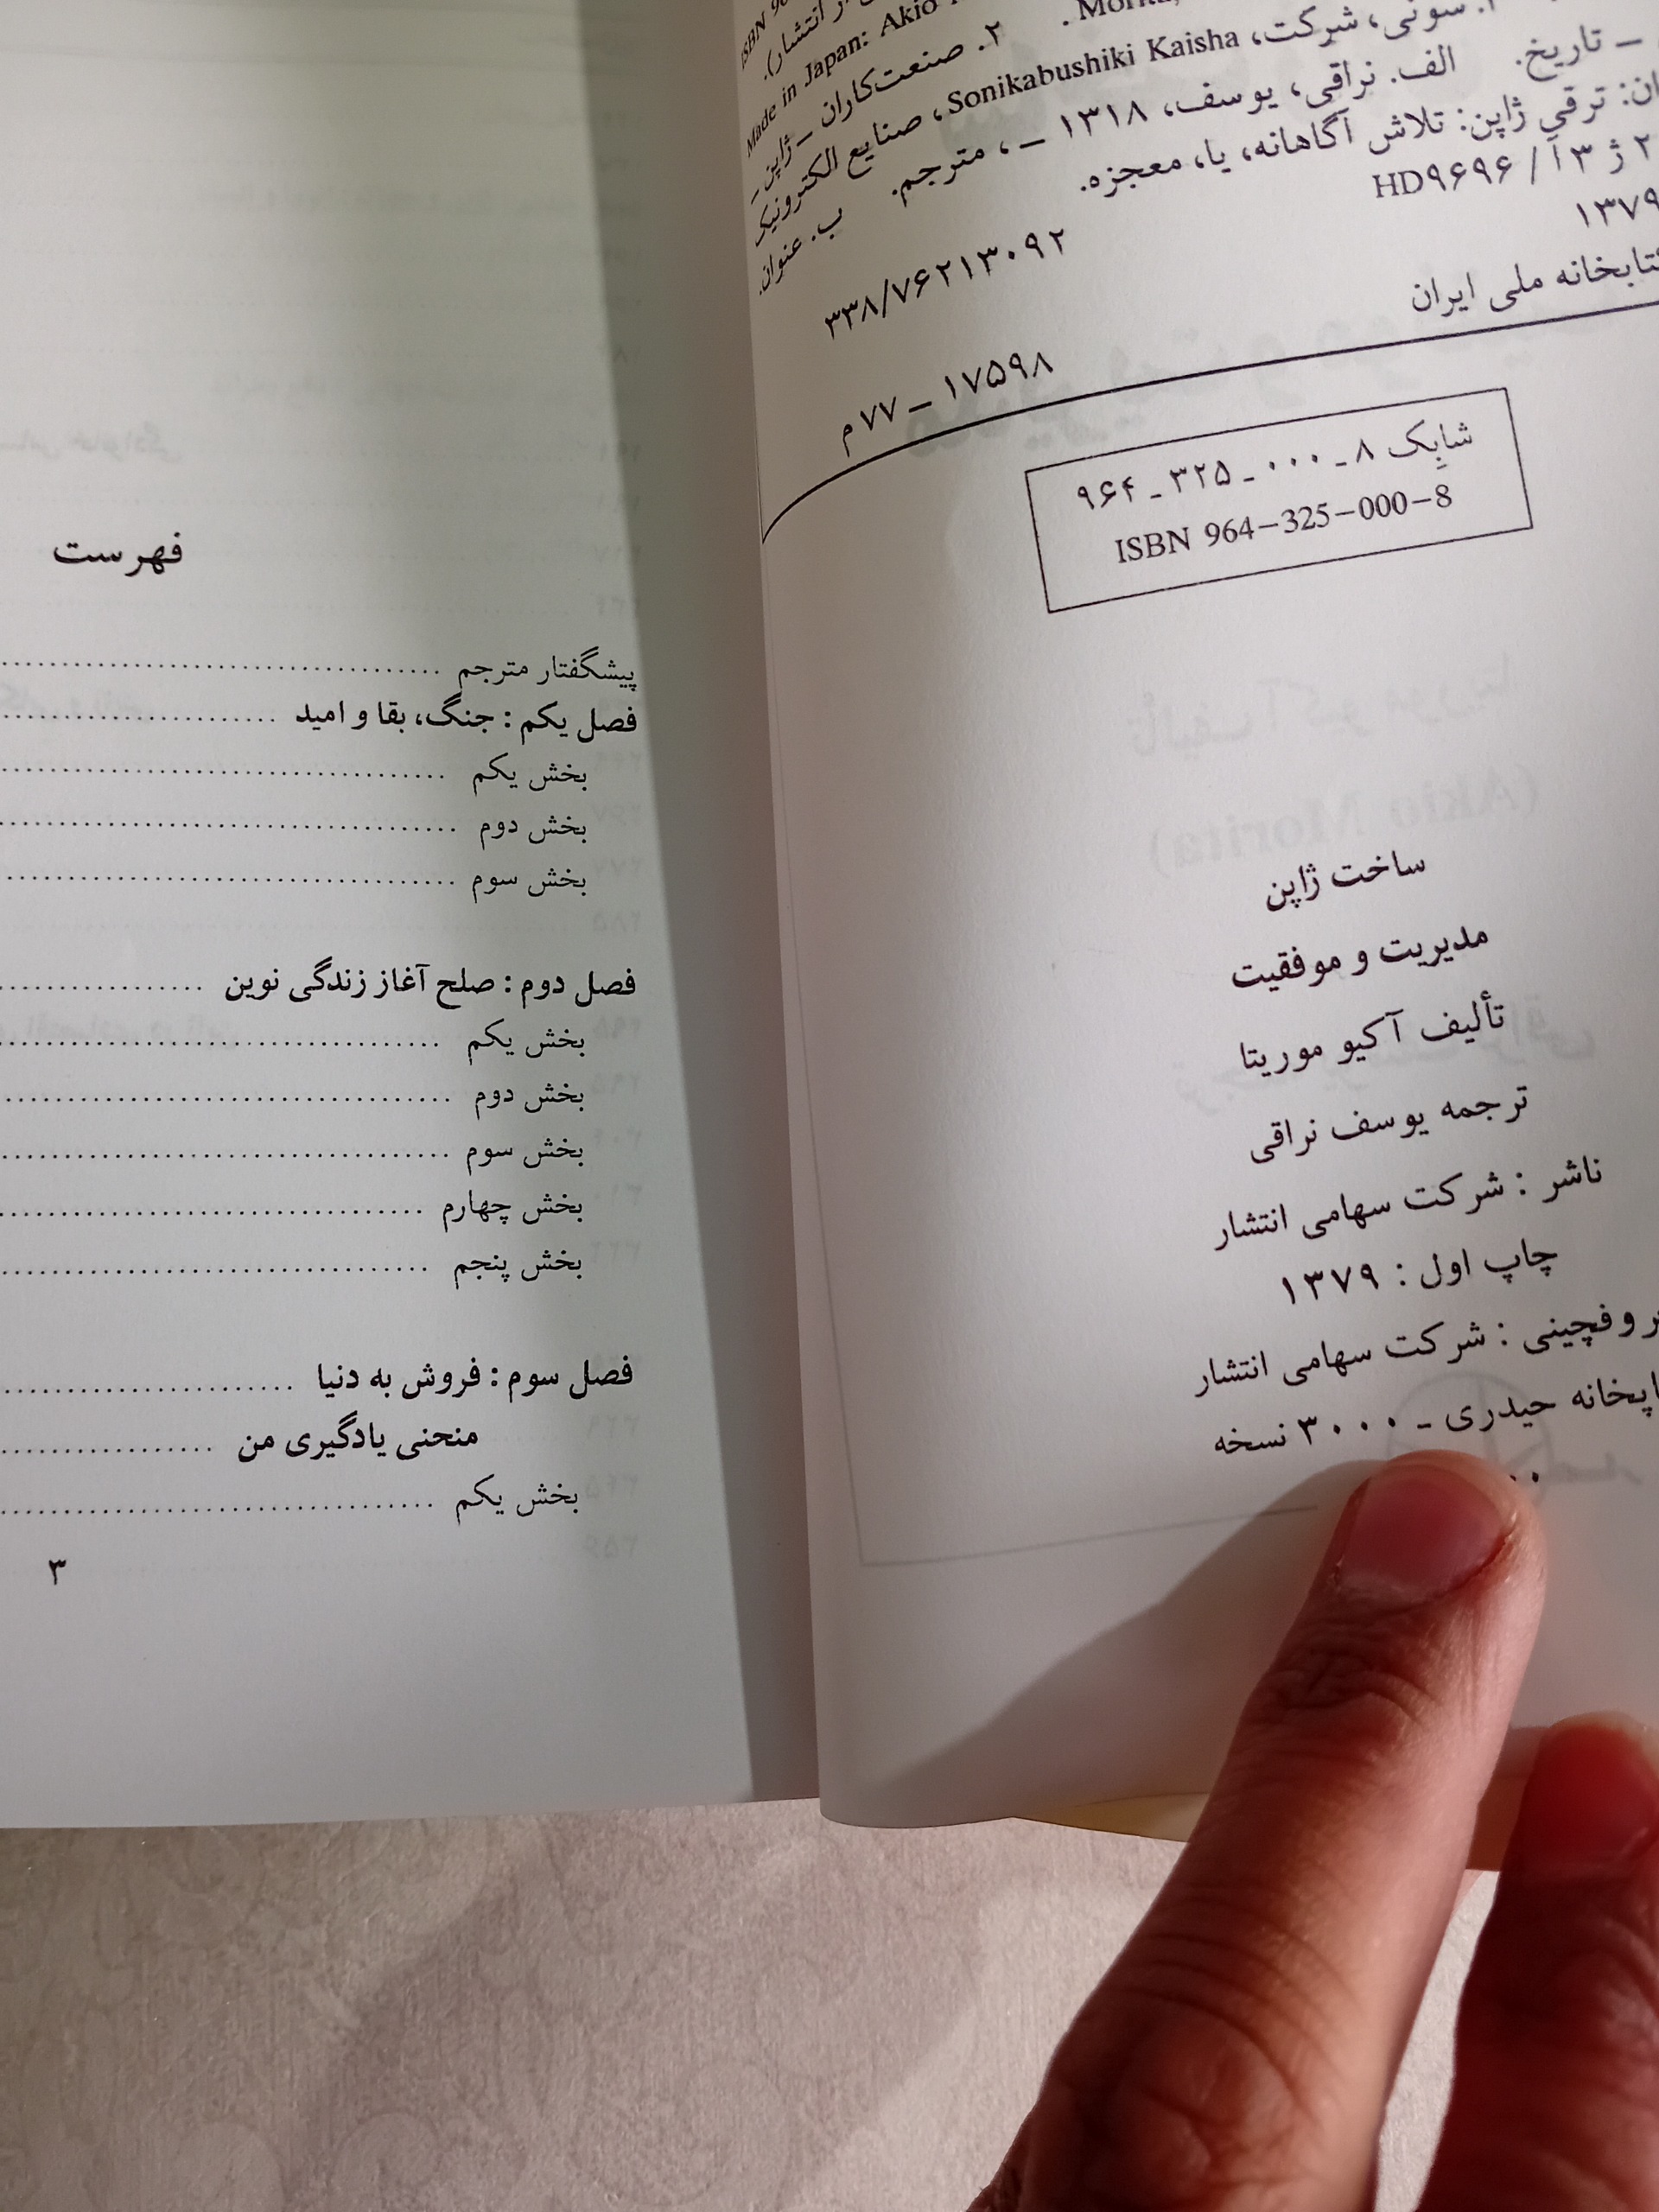 ISBN
انتشار).
Made in Japan: Akio
۲. صنعت‌کاران ـ ژاپن ـ
سونی، شرکت، Sonikabushiki Kaisha، صنایع الکترونیک
ـ تاریخ. الف. نراقی، یوسف، ۱۳۱۸ ـ ، مترجم. ب. عنوان.
ترقی ژاپن: تلاش آگاهانه، یا، معجزه.
۲ ژ ۳ آ / HD۹۶۹۶
۳۳۸/۷۶۲۱۳۰۹۲
۱۳۷۹
ملی ایران
۱۷۵۹۸ ـ ۷۷ م
شابک ۸ ـ ۰۰۰ ـ ۳۲۵ ـ ۹۶۴
ISBN 964-325-000-8
ساخت ژاپن
مدیریت و موفقیت
تألیف آکیو موریتا
ترجمه یوسف نراقی
ناشر : شرکت سهامی انتشار
چاپ اول : ۱۳۷۹
شرکت سهامی انتشار
حیدری ـ ۳۰۰۰ نسخه
فهرست
پیشگفتار مترجم
فصل یکم : جنگ، بقا و امید
بخش یکم
بخش دوم
بخش سوم
فصل دوم : صلح آغاز زندگی نوین
بخش یکم
بخش دوم
بخش سوم
بخش چهارم
بخش پنجم
فصل سوم : فروش به دنیا
منحنی یادگیری من
بخش یکم
۳